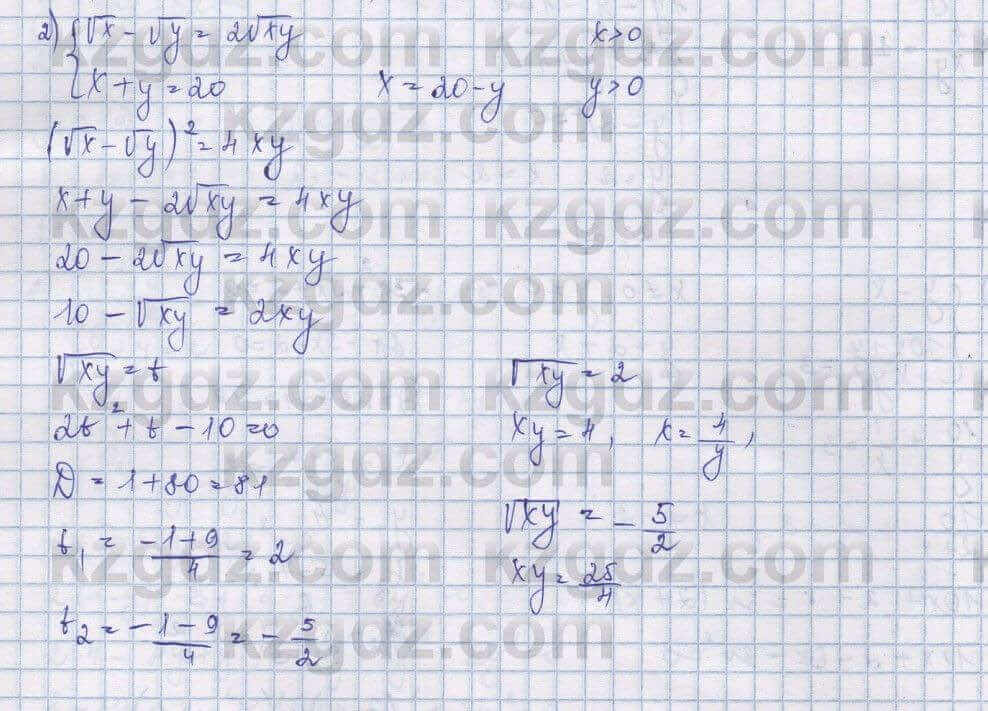 2) {√x - √y = 2√xy x>0
{x + y = 20 x = 20 - y y>0
(√x - √y)² = 4xy
x + y - 2√xy = 4xy
20 - 2√xy = 4xy
10 - √xy = 2xy
√xy = t
2t² + t - 10 = 0
D = 1 + 80 = 81
t₁ = (-1+9)/4 = 2
t₂ = (-1-9)/4 = -5/2
√xy = 2
xy = 4, x = 4/y,
√xy = -5/2
xy = 25/4
kzgdz.com